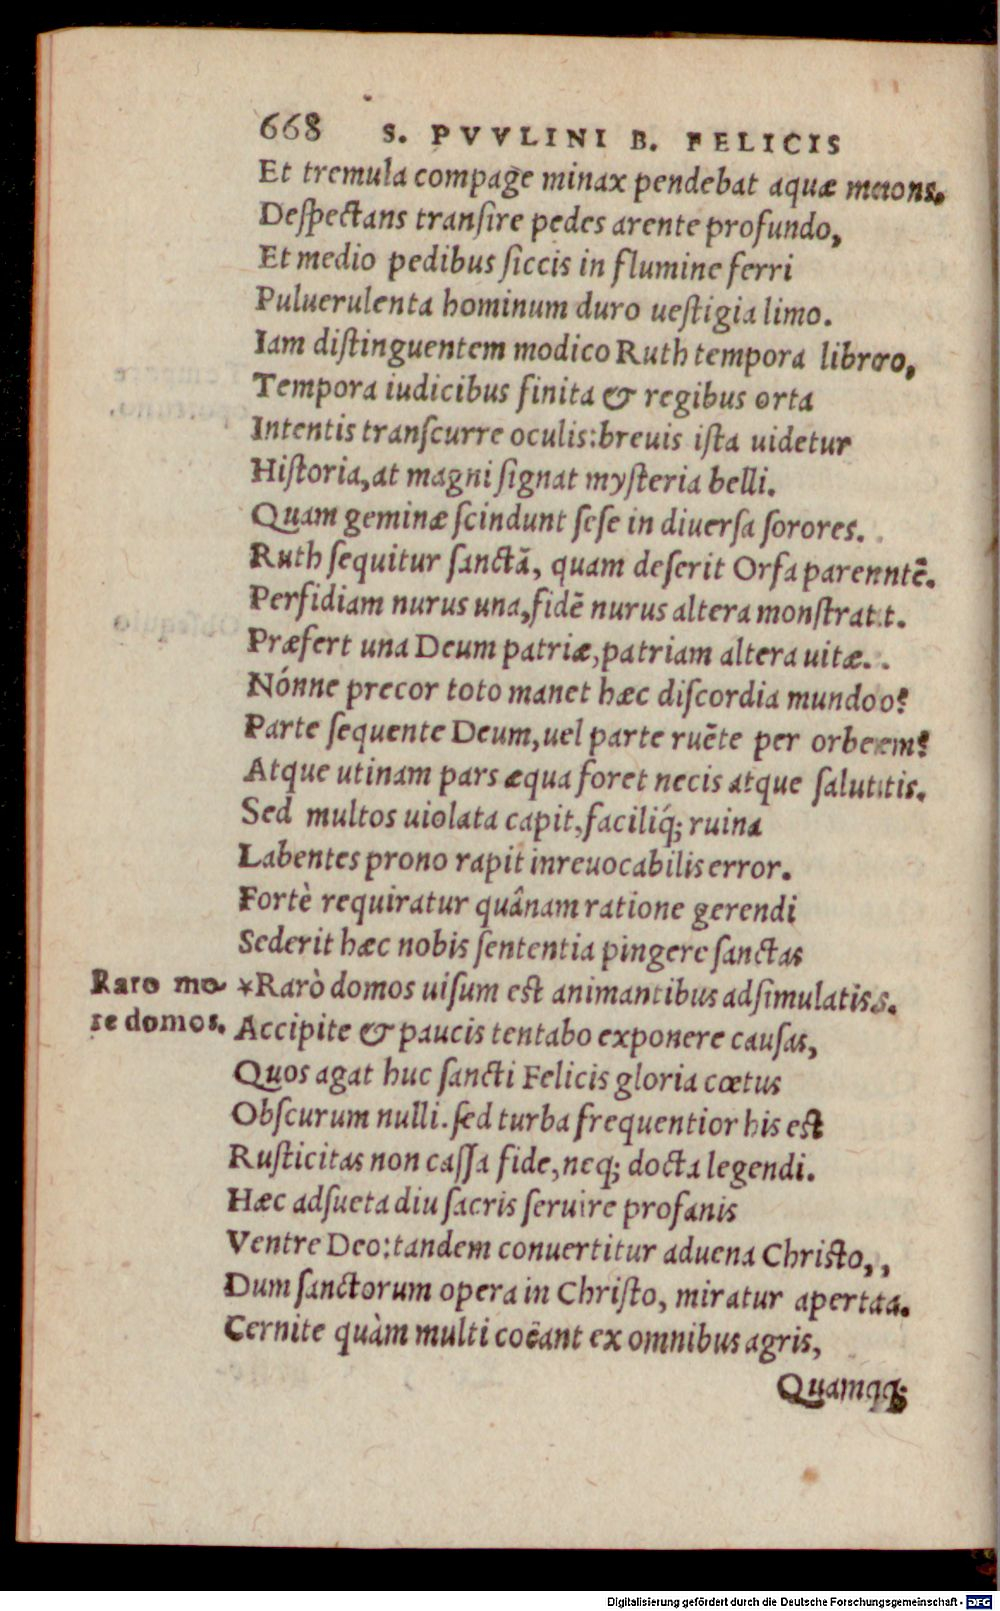 668 S. PVVLINI B. FELICIS
Et tremula compage minax pendebat aquæ mons.
Deſpectans tranſire pedes arente profundo,
Et medio pedibus ſiccis in flumine ferri
Puluerulenta hominum duro ueſtigia limo.
Iam diſtinguentem modico Ruth tempora libro,
Tempora iudicibus finita & regibus orta
Intentis tranſcurre oculis: breuis iſta uidetur
Hiſtoria, at magni ſignat myſteria belli.
Quam geminæ ſcindunt ſeſe in diuerſa ſorores.
Ruth ſequitur ſanctā, quam deſerit Orfa parentē.
Perfidiam nurus una, fidē nurus altera monſtrat.
Præfert una Deum patriæ, patriam altera uitæ.
Nónne precor toto manet hæc diſcordia mundo?
Parte ſequente Deum, uel parte ruēte per orbem?
Atque utinam pars æqua foret necis atque ſalutis.
Sed multos uiolata capit, faciliq́; ruina
Labentes prono rapit inreuocabilis error.
Fortè requiratur quânam ratione gerendi
Sederit hæc nobis ſententia pingere ſanctas
Raro mo- *Rarò domos uiſum est animantibus adſimulatis.
re domos. Accipite & paucis tentabo exponere cauſas,
Quos agat huc ſancti Felicis gloria cœtus
Obſcurum nulli. ſed turba frequentior his est
Ruſticitas non caſſa fide, neq; docta legendi.
Hæc adſueta diu ſacris ſeruire profanis
Ventre Deo: tandem conuertitur aduena Chriſto,
Dum ſanctorum opera in Chriſto, miratur aperta.
Cernite quàm multi coëant ex omnibus agris,
Quamq;
Digitalisierung gefördert durch die Deutsche Forschungsgemeinschaft - DFG